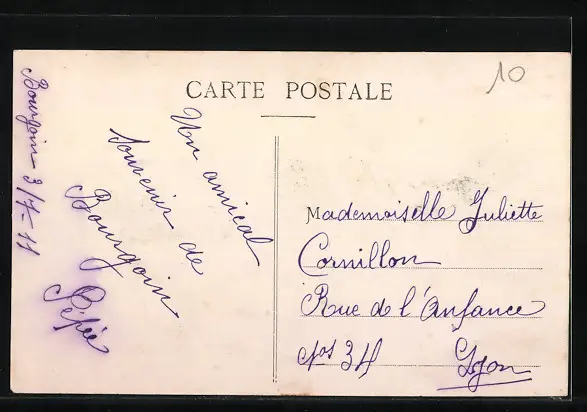 CARTE POSTALE
10
Bourgoin 3/7-11
Un amical
souvenir de
Bourgoin
Pépée
Mademoiselle Juliette
Cornillon
Rue de l'Anfance
34 Lyon